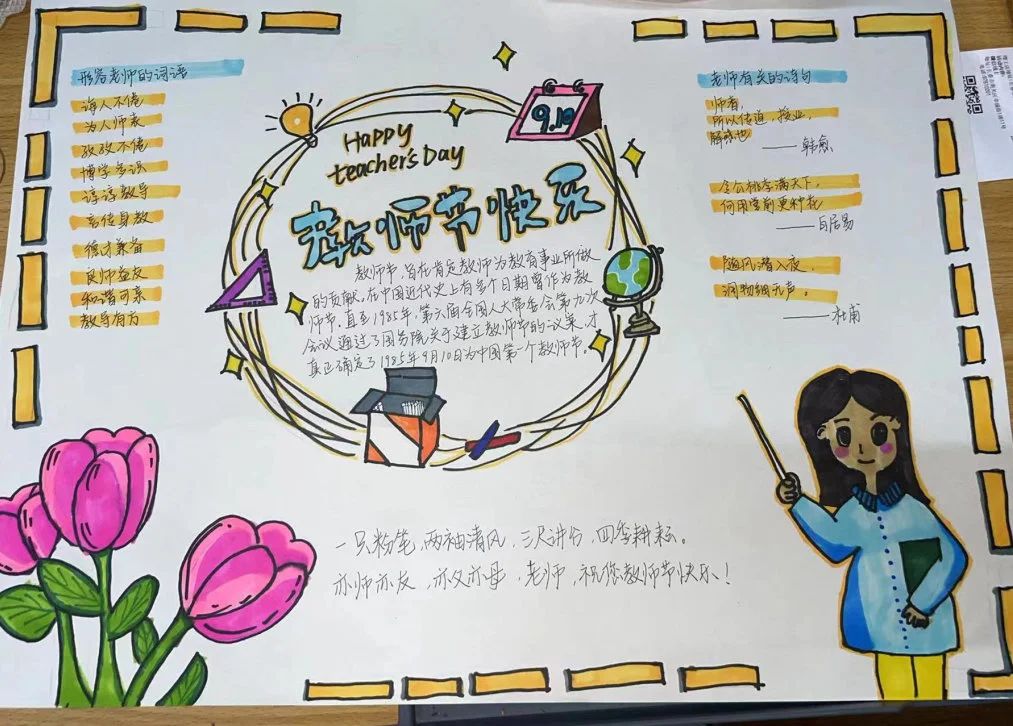 形容老师的词语
诲人不倦
为人师表
孜孜不倦
博学多识
谆谆教导
言传身教
德才兼备
良师益友
和谐可亲
教导有方
Happy
teacher's Day
9.10
教师节快乐
教师节，旨在肯定教师为教育事业所做
的贡献，在中国近代史上有多个日期曾作为教
师节，直至1985年，第六届全国人大常委会第九次
会议通过了国务院关于建立教师节的议案，才
真正确定了1985年9月10日为中国第一个教师节。
老师有关的诗句
师者，
所以传道，授业，
解惑也
——韩愈
令公桃李满天下，
何用堂前更种花
——白居易
随风潜入夜，
润物细无声。
——杜甫
一只粉笔，两袖清风，三尺讲台，四季耕耘。
亦师亦友，亦父亦母，老师，祝您教师节快乐！